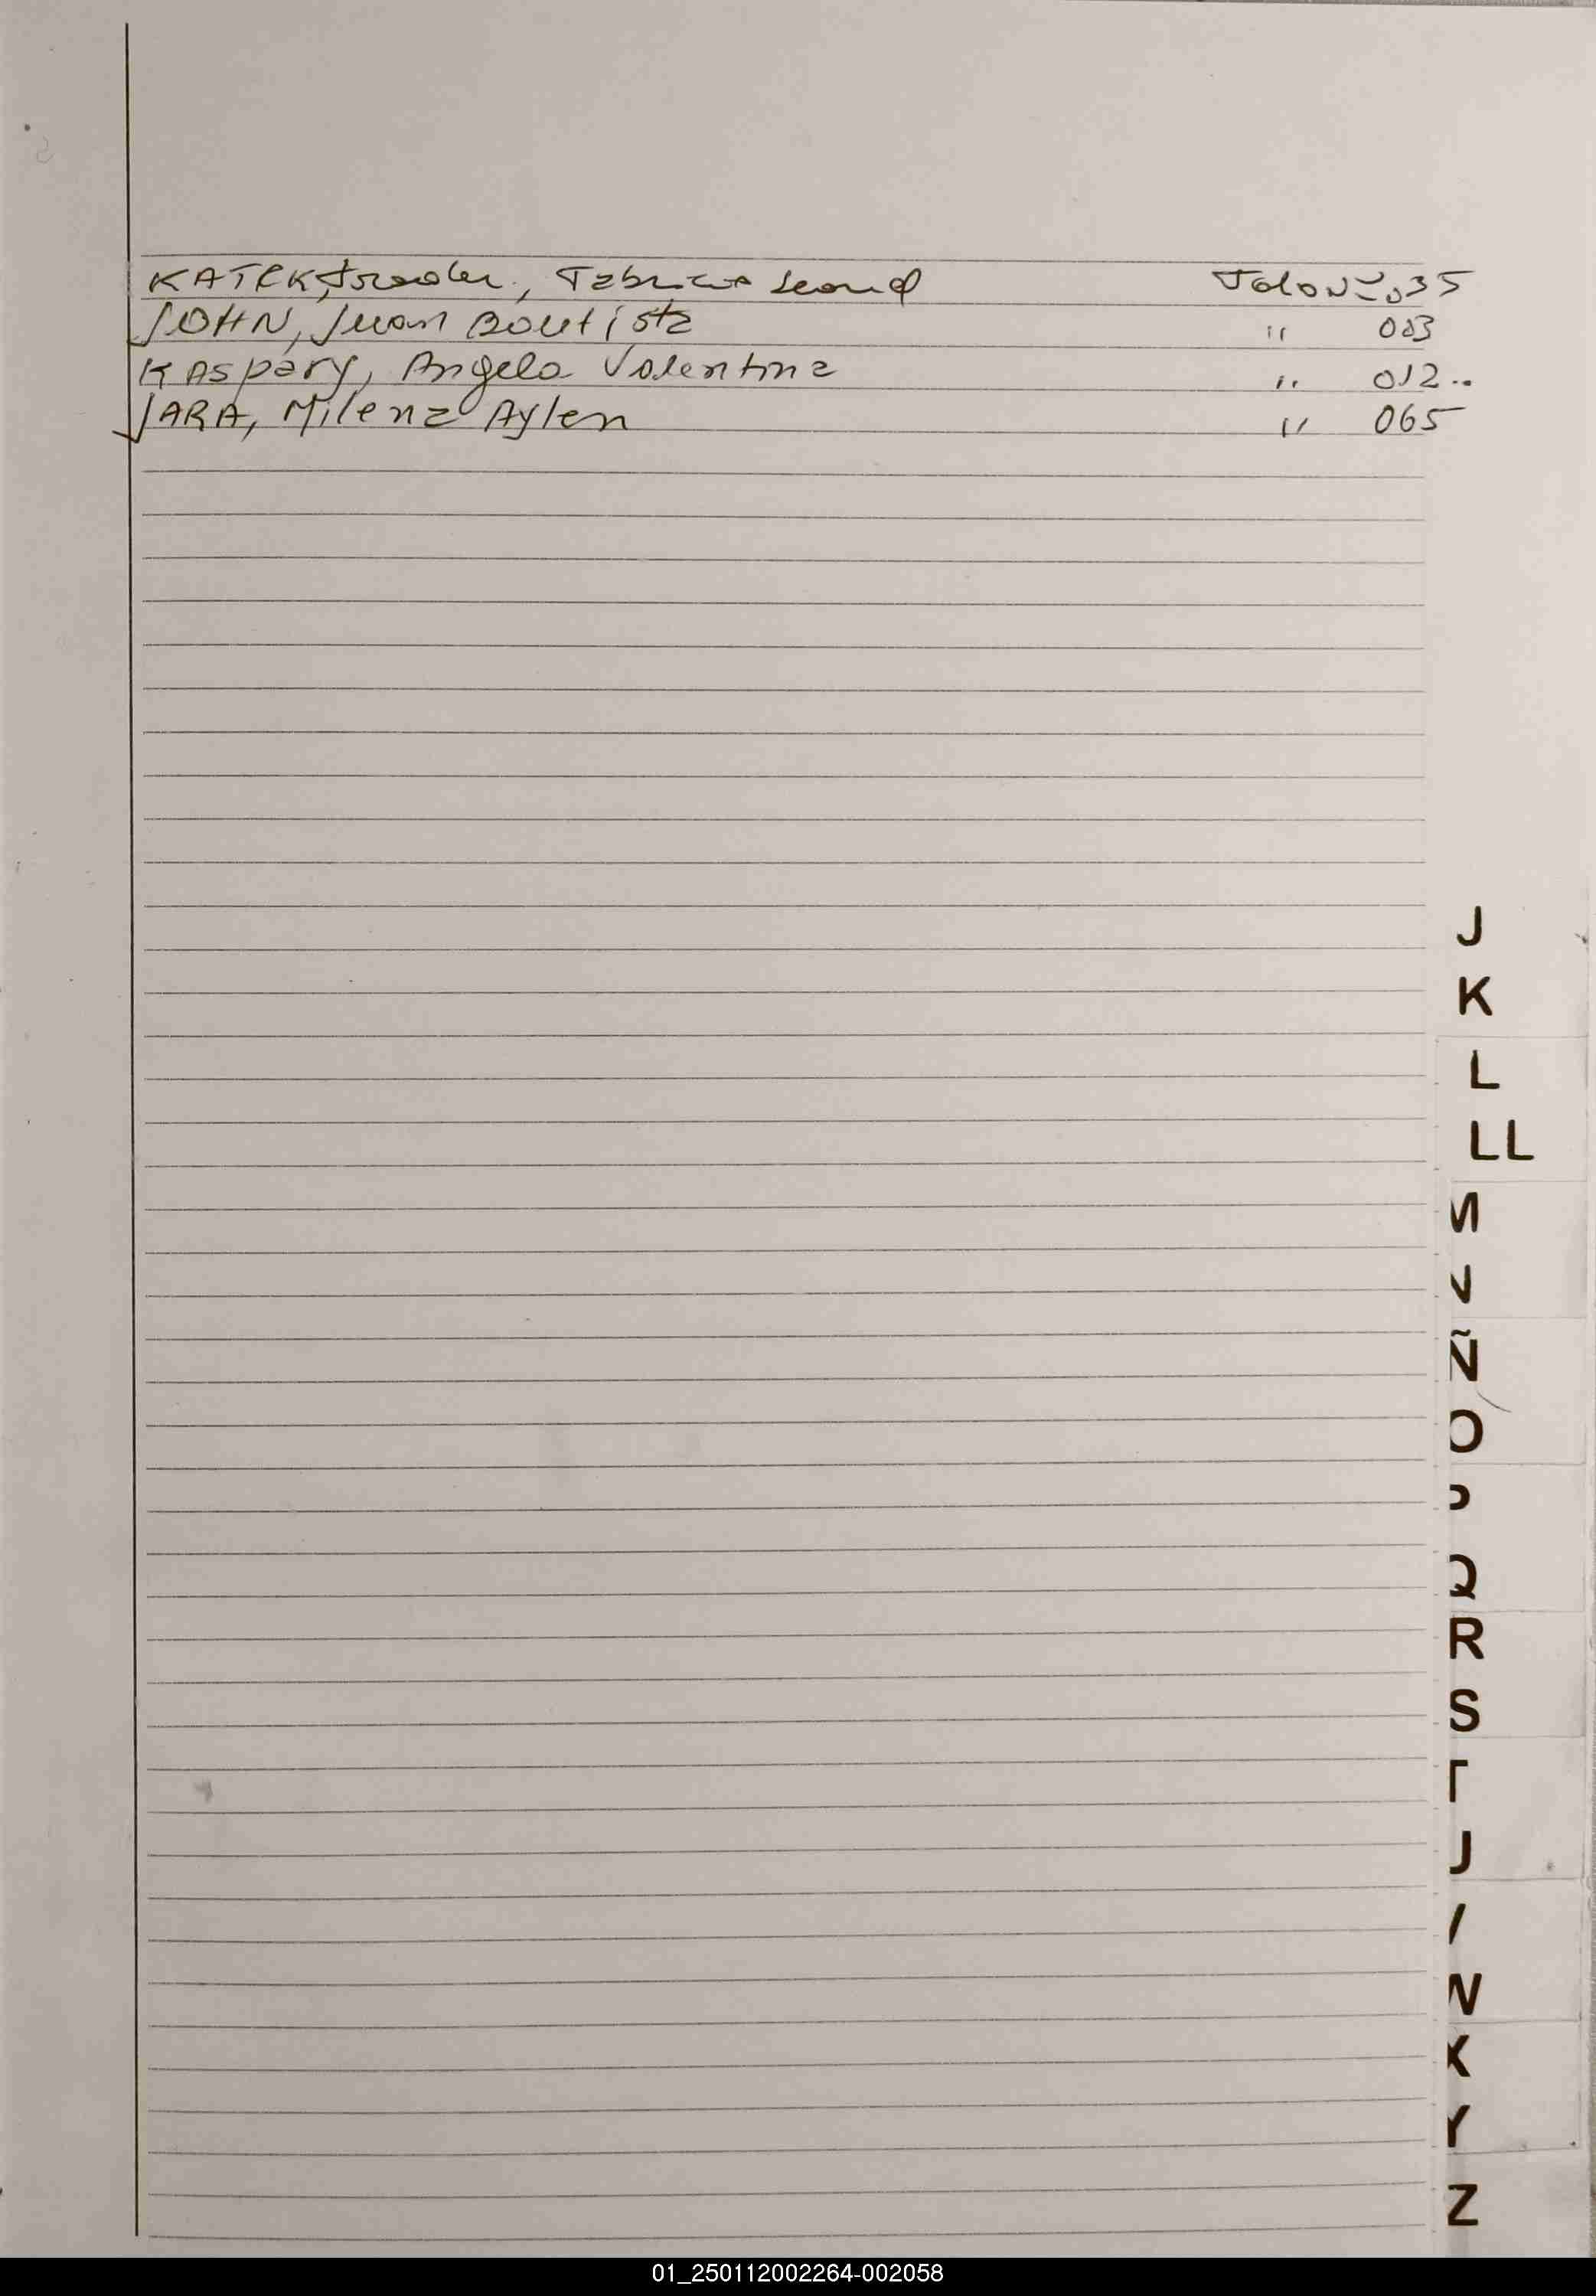 KATRK, Fabricio Leonel Folio Nº 035
JOHN, Juan Bautista " 003
KASpary, Angela Valentina " 012..
JARA, Milena Aylen " 065
J
K
L
LL
M
N
Ñ
O
P
Q
R
S
T
U
V
W
X
Y
Z
01_250112002264-002058